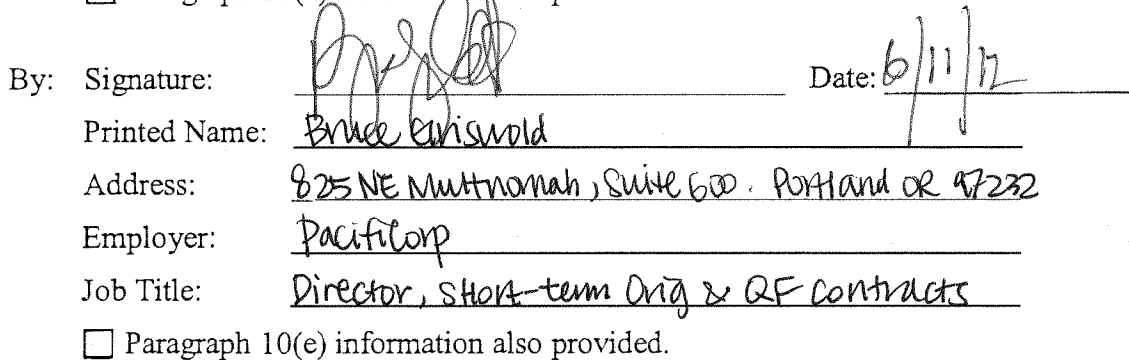 By: Signature: Date: 6/11/12
Printed Name: Bruce Griswold
Address: 825 NE Multnomah, Suite 600. Portland OR 97232
Employer: PacifiCorp
Job Title: Director, Short-term Orig & QF contracts
☐ Paragraph 10(e) information also provided.